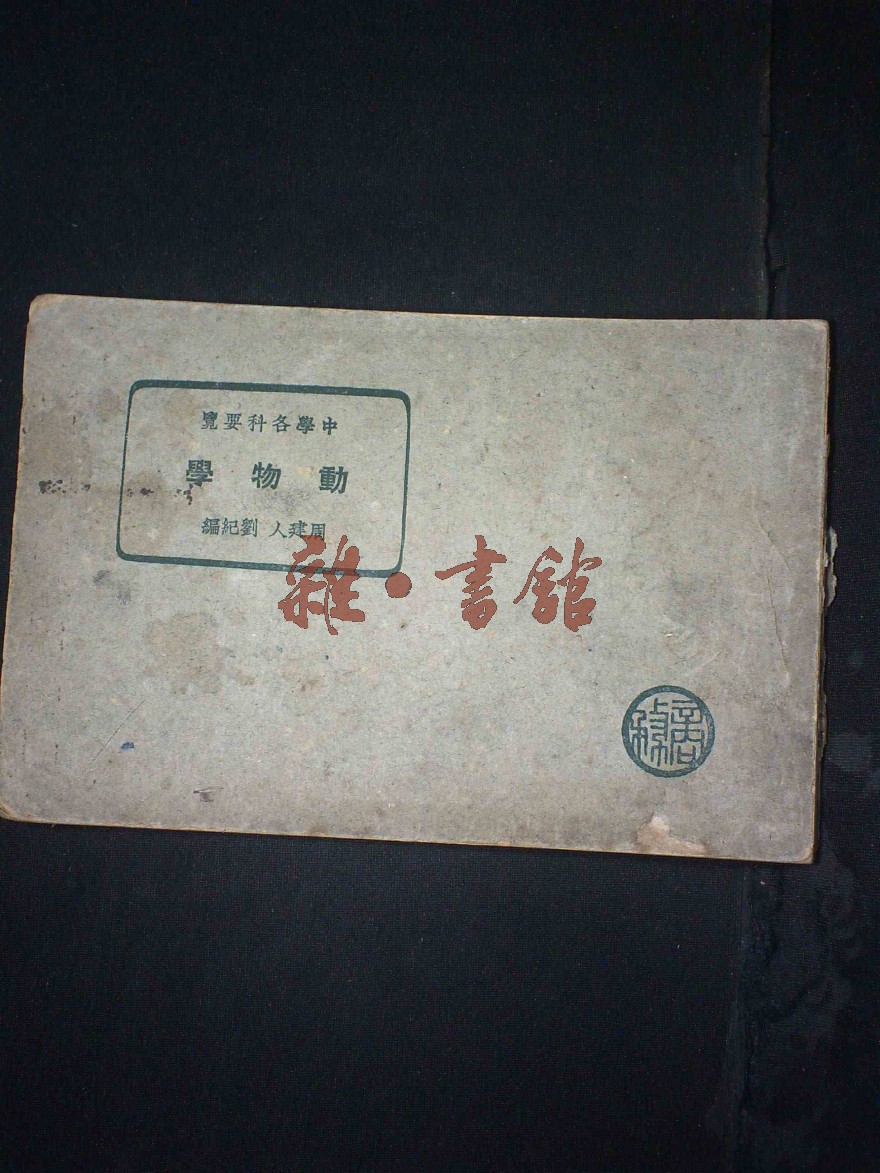 中學各科要覽
動物學
周建人 劉紀編
雜·書館